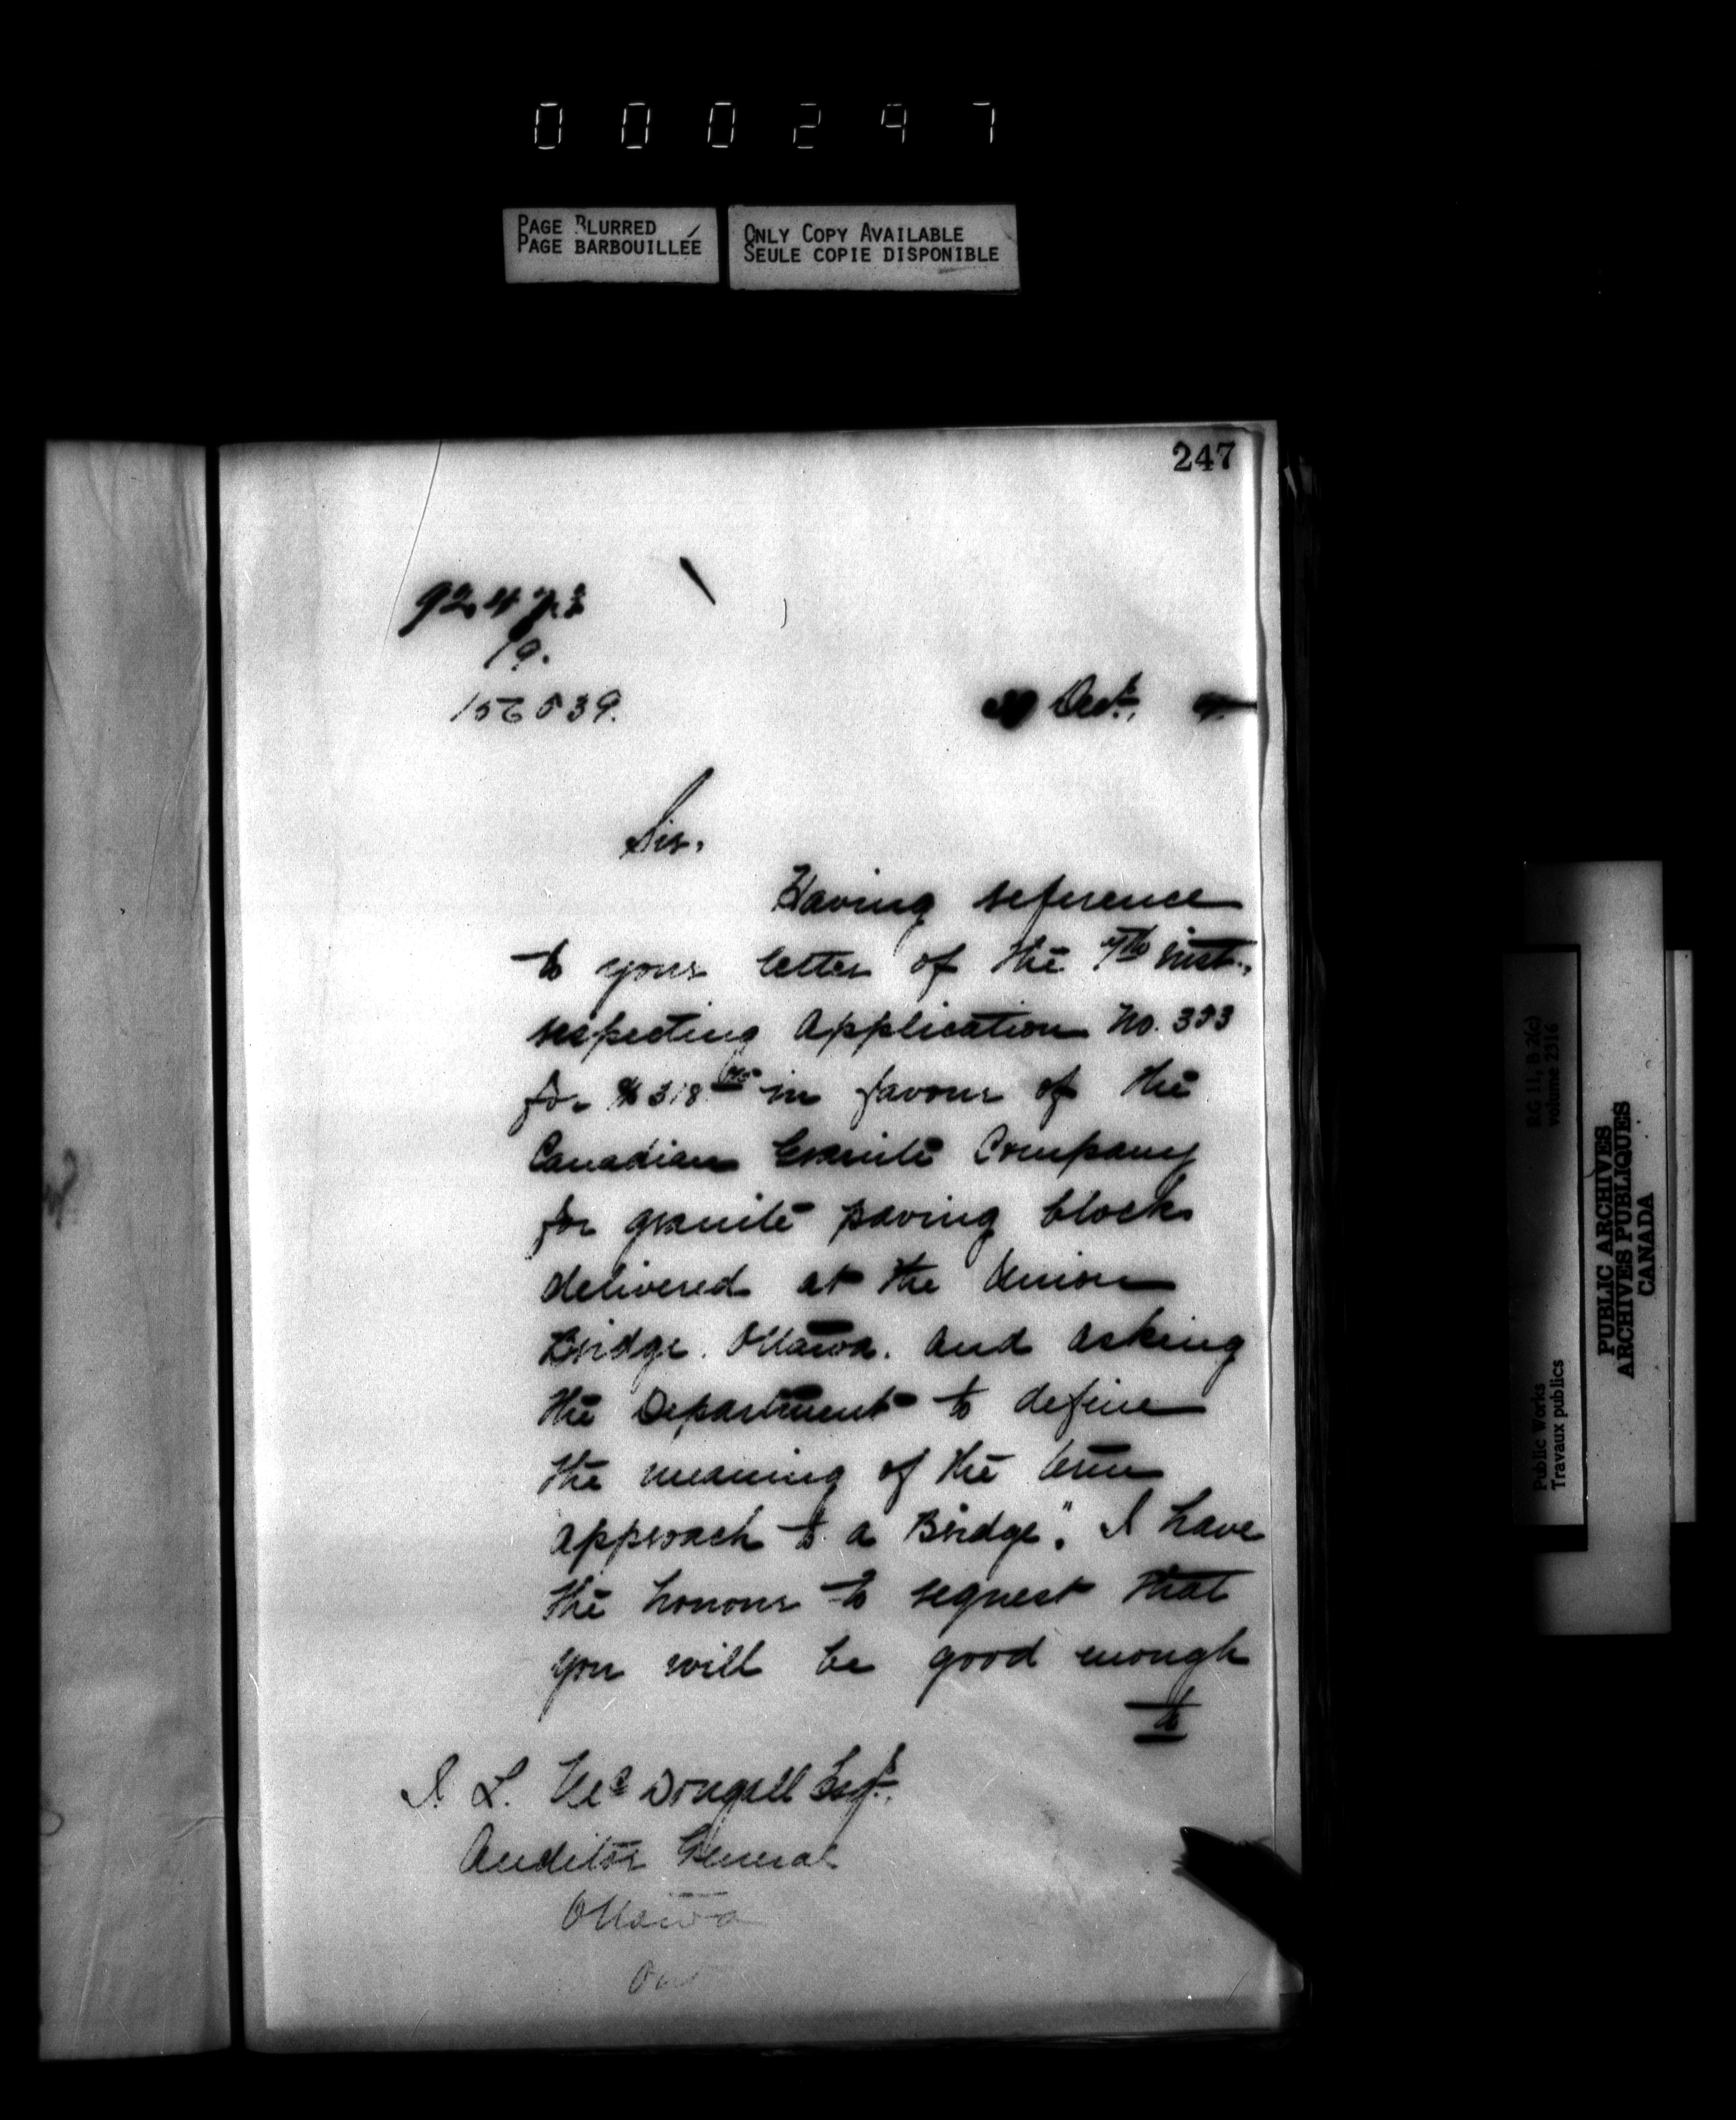 000297
PAGE BLURRED
PAGE BARBOUILLÉE
ONLY COPY AVAILABLE
SEULE COPIE DISPONIBLE
247
19.
Sir.
Having reference
to your letter of the 7th inst.,
respecting Application No. 333
for $318 in favour of the
Canadian Granite Company
for granite paving blocks
delivered at the Union
Bridge. Ottawa. and asking
the Department to define
the meaning of the term
approach to a Bridge". I have
the honour to request that
you will be good enough
to
L. McDougall Esq.,
Auditor General
Ottawa
RG 11, B 2(c)
volume 2316
Public Works
Travaux publics
PUBLIC ARCHIVES
ARCHIVES PUBLIQUES
CANADA